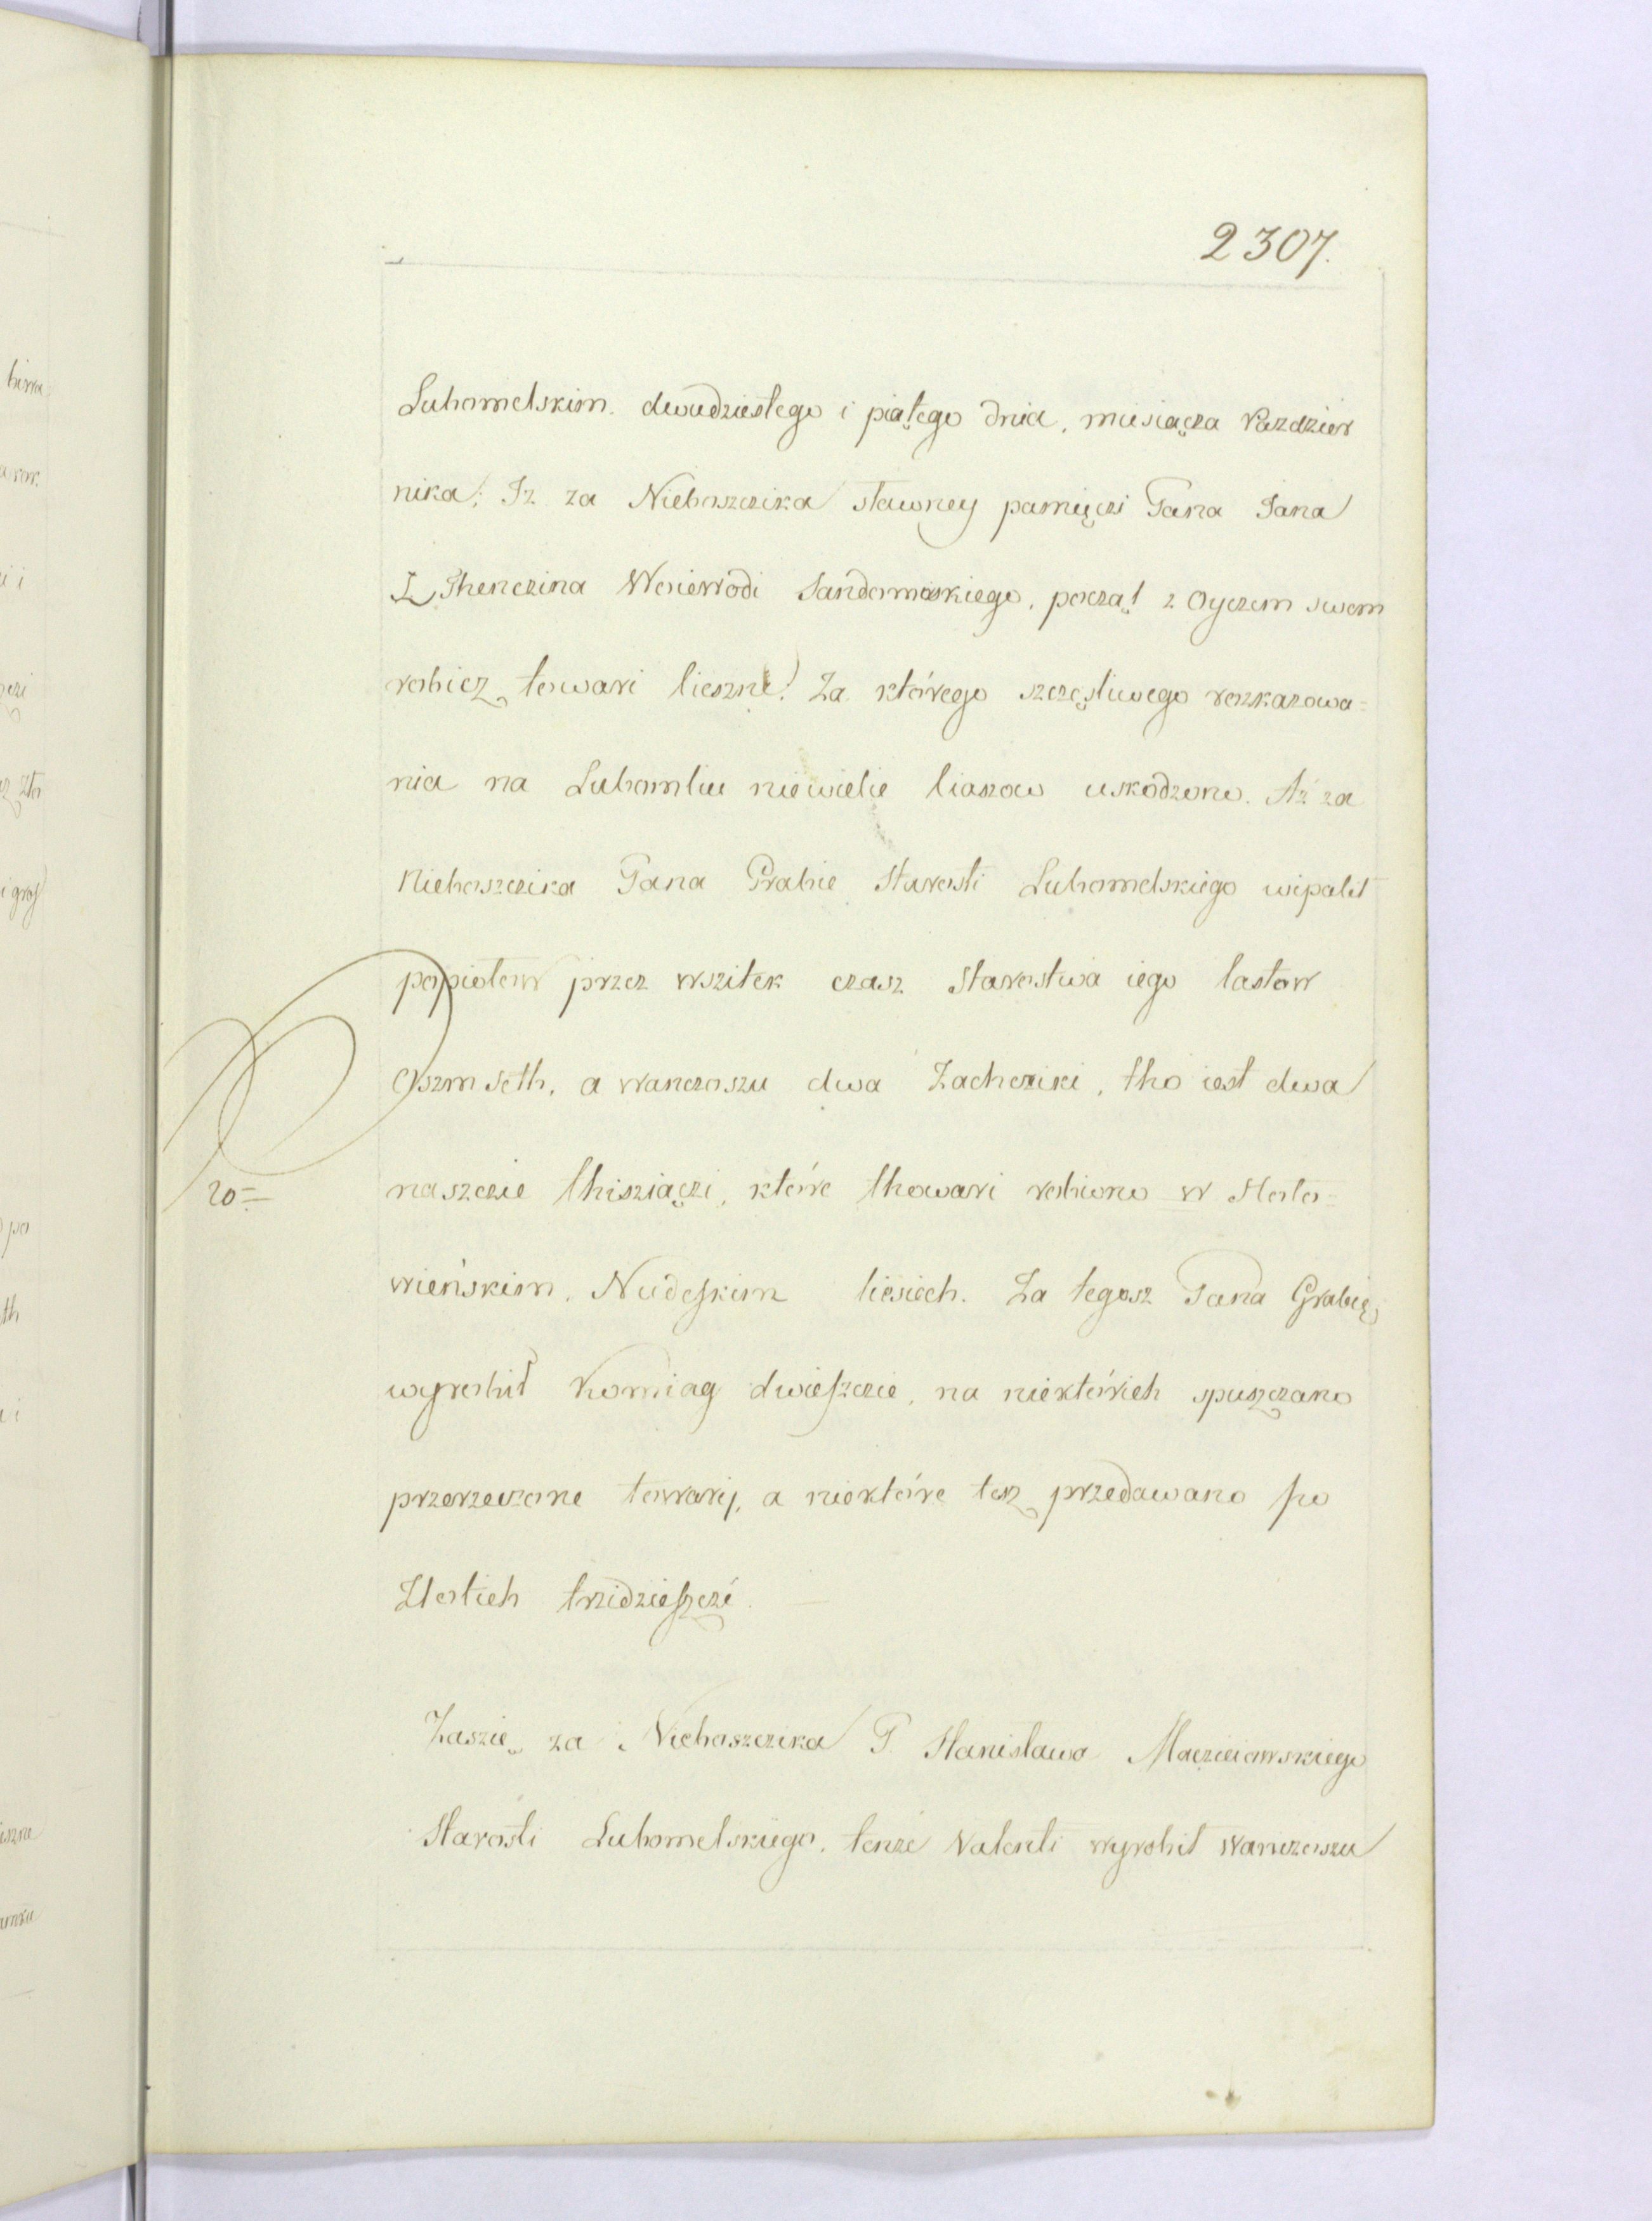 2307.
Luhomelskim. dwudziestego i piątego dnia, miesiącza Pazdzier
nika; Iz za Nieboszczika sławney pamięczi Pana Jana
Z Thenczina Woiewodi Sandomirskiego, począł z Oyczem swem
robicz towari lieszne. Za którego szczęsliwego roskazowa=
nia na Lubomliu niewielie liaszow uskodzono. Aż za
Nieboszczika Pana Grabie Starosti Luhomelskiego wipalił
popiołow przez wszitek czasz Starostwa iego lasztow
Oszm seth, a wanczoszu dwa Zachcziki, tho iest dwa
20= naszczie thisziączi, które thowari robiono w Stolo=
wieńskim, Nudeskim liesiech. Za tegosz Pana Grabię,
wyrobił Komiag dwieszczie, na niektórich spuszczano
przerzeczone towarij, a niektóre tesz przedawano po
Złotich trzidzieszczi.
Zaszię za Nieboszczika P. Stanisława Maczieiowskiego
Starosti Luhomelskiego, tenze Valenti wyrobił Wanczoszu